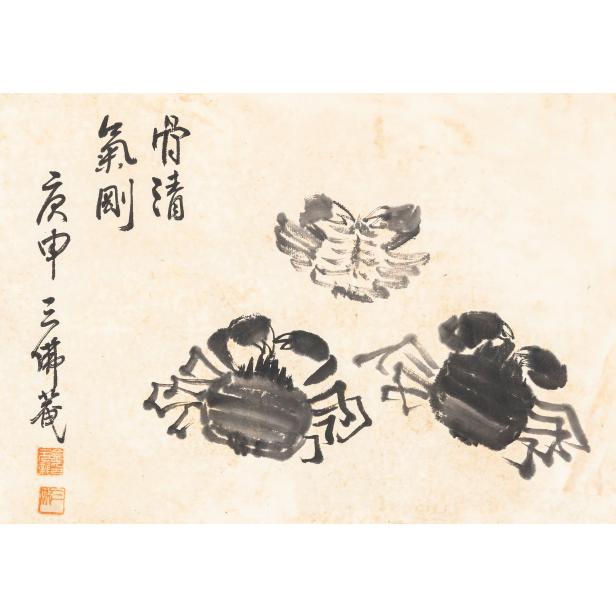 骨清
氣剛
庚申三佛菴